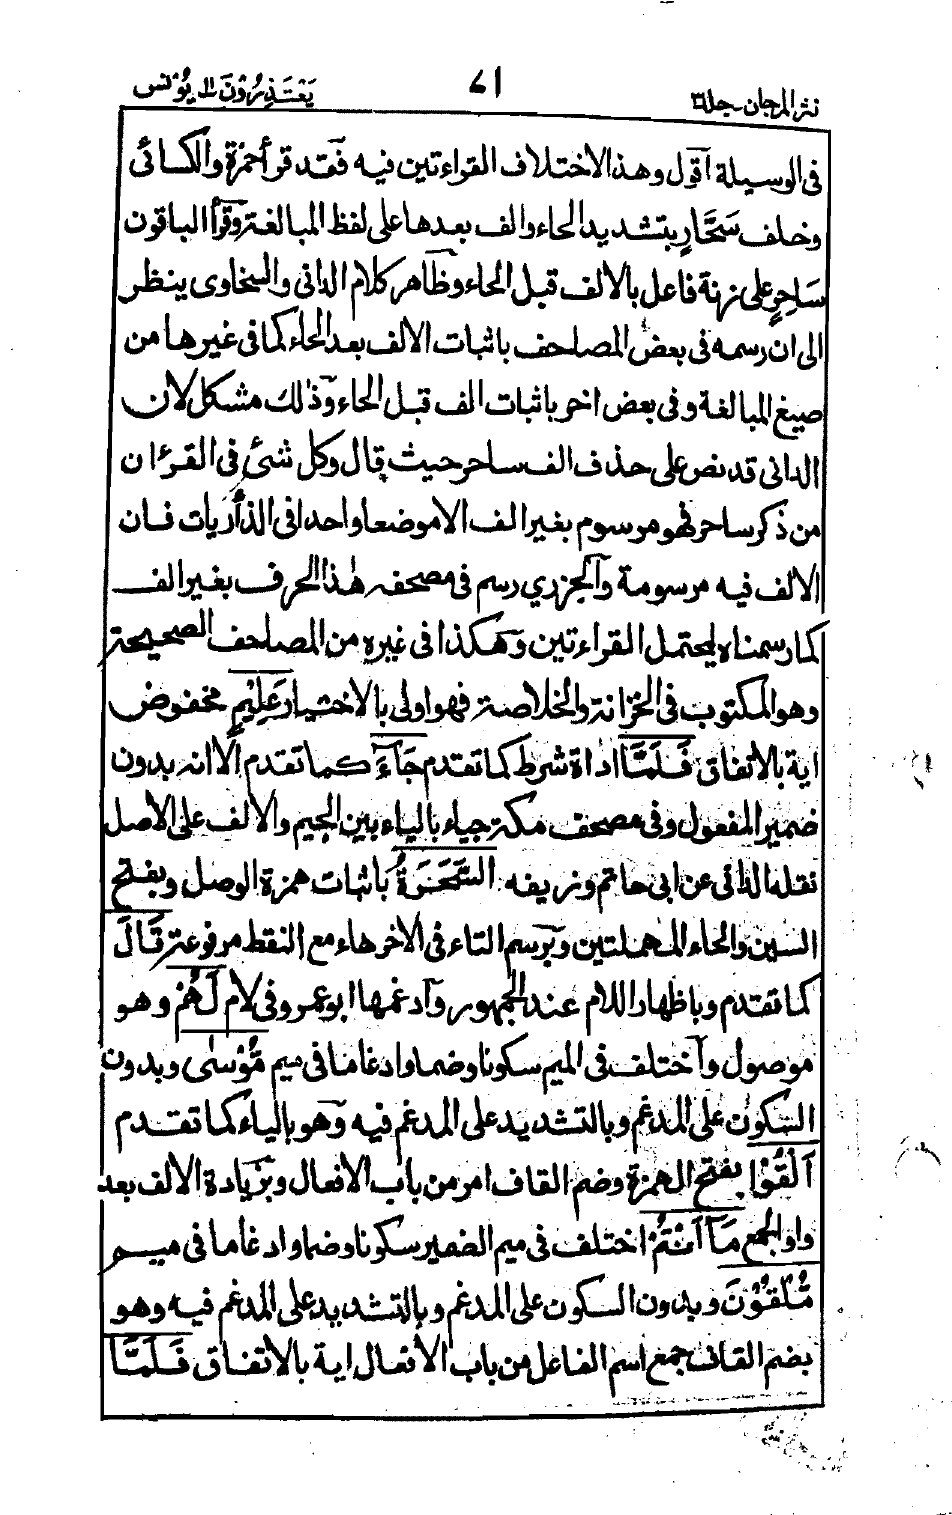 نثر المرجان جلد ٣
٧١
يَعْتَذِرُوْنَ ١١ يُوْنس
فى الوسيلة آقول وهذا الاختلاف القراءتين فيه فقد قرأ حمزة والكسائى
وخلف سَحَّارٍ بتشديد الحاء والف بعدها على لفظ المبالغة وقرأ الباقون
سَاحِرٍ على زنة فاعل بالالف قبل الحاء وظاهر كلام الدانى والسخاوى ينظر
الى ان رسمه فى بعض المصاحف باثبات الالف بعد الحاء كما فى غيرها من
صيغ المبالغة وفى بعض اخر باثبات الف قبل الحاء وذٰلك مشكل لان
الدانى قد نص على حذف الف ساحر حيث قال وكل شئ فى القرءان
من ذكر ساحر فهو مرسوم بغير الف الا موضعا واحدا فى الذٰريات فان
الالف فيه مرسومة والجزري رسم فى مصحفه هٰذا الحرف بغير الف
كما رسمناه ليحتمل القراءتين وهكذا فى غيره من المصاحف الصحيحة
وهو المكتوب فى الخزانة والخلاصة فهو اولى بالاختيار عَلِيْمٍ مخفوض
اية بالاتفاق فَلَمَّا اداة شرط كما تقدم جَآءَ كما تقدم الا انه بدون
ضمير المفعول وفى مصحف مكة جياء بالياء بين الجيم والالف على الاصل
نقله الدانى عن ابى حاتم ونزيفه السَّحَرَةُ باثبات همزة الوصل وبفتح
السين والحاء المهملتين وبرسم التاء فى الاخر هاء مع النقط مرفوعة قَالَ
كما تقدم وباظهار اللام عند الجمهور وآدغمها ابو عمرو فى لام لَهُمْ وهو
موصول وآختلف فى الميم سكونا وضما وادغاما فى ميم مُّوْسٰى وبدون
السكون على المدغم وبالتشديد على المدغم فيه وهو بالياء كما تقدم
اَلْقُوْا بفتح الهمزة وضم القاف امر من باب الافعال وبزيادة الالف بعد
واو الجمع مَآ اَنْتُمْ اختلف فى ميم الضمير سكونا وضما وادغاما فى ميم
مُّلْقُوْنَ وبدون السكون على المدغم وبالتشديد على المدغم فيه وهو
بضم القاف جمع اسم الفاعل من باب الافعال اية بالاتفاق فَلَمَّا